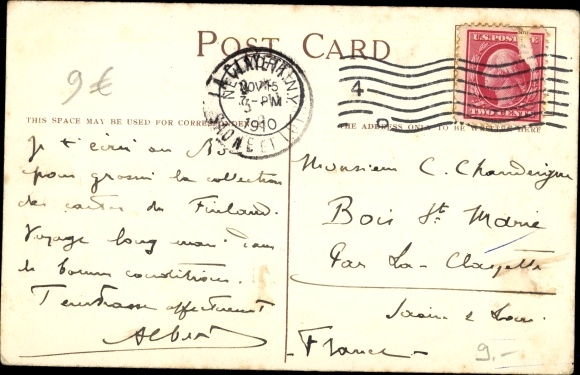 POST CARD
9 €
U.S. POSTAGE
TWO CENTS
NEW YORK, N.Y.
NOV 15
3 - PM
1910
4
THIS SPACE MAY BE USED FOR CORRESPONDENCE
THE ADDRESS ONLY TO BE WRITTEN HERE
Je t'écris au
pour grossir la collection
des cartes du Finland.
Voyage long mais dans
de bonnes conditions.
T'embrasse affectueusement
Albert
Monsieur C.
Bois Ste Marie
Par La - Clayette
Saône & Loire
France
9.-